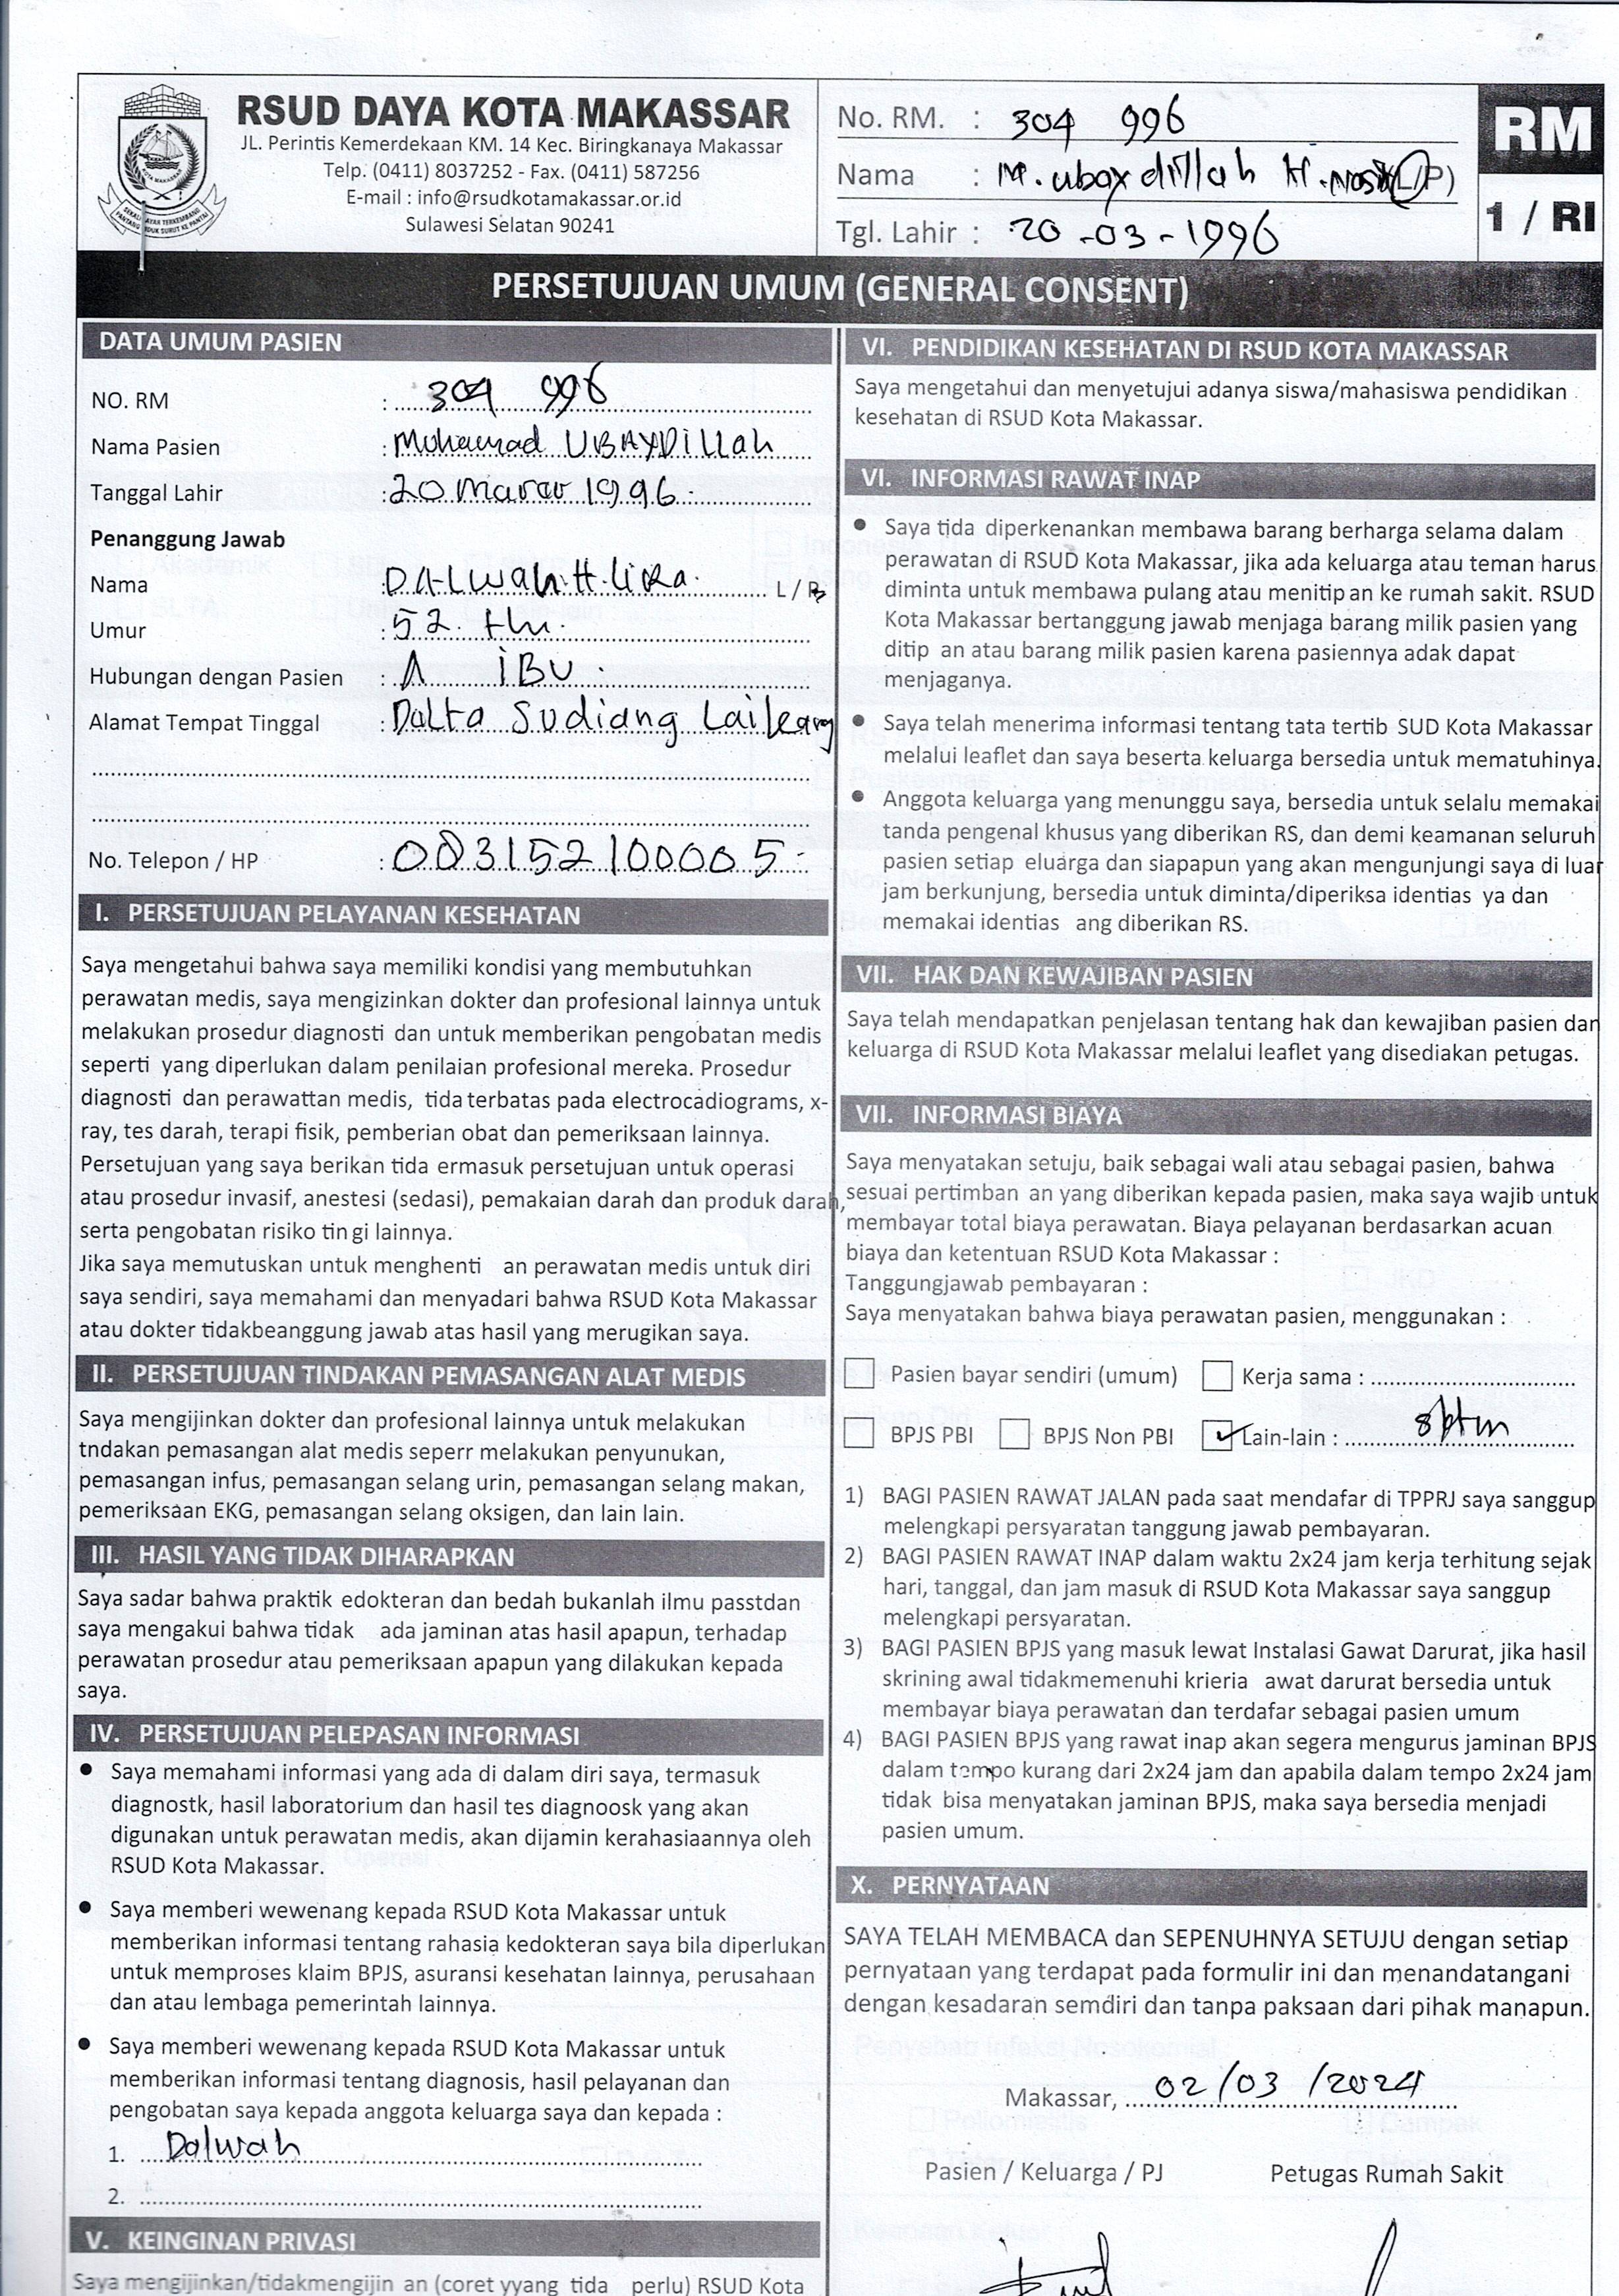 RSUD DAYA KOTA MAKASSAR
JL. Perintis Kemerdekaan KM. 14 Kec. Biringkanaya Makassar
Telp. (0411) 8037252 - Fax. (0411) 587256
E-mail : info@rsudkotamakassar.or.id
Sulawesi Selatan 90241
No. RM. : 304 996
Nama : M. ubaydillah H. (L/P)
Tgl. Lahir : 20-03-1996
RM
1 / RI
PERSETUJUAN UMUM (GENERAL CONSENT)
DATA UMUM PASIEN
NO. RM : 304 996
Nama Pasien : Muhamad UBAYDILLah
Tanggal Lahir : 20 1996
Penanggung Jawab
Nama : DALWah. H. L / P
Umur : 52 thn.
Hubungan dengan Pasien : IBU
Alamat Tempat Tinggal : Sudiang
No. Telepon / HP : 083152100005
I. PERSETUJUAN PELAYANAN KESEHATAN
Saya mengetahui bahwa saya memiliki kondisi yang membutuhkan
perawatan medis, saya mengizinkan dokter dan profesional lainnya untuk
melakukan prosedur diagnosti dan untuk memberikan pengobatan medis
seperti yang diperlukan dalam penilaian profesional mereka. Prosedur
diagnosti dan perawattan medis, tida terbatas pada electrocadiograms, x-
ray, tes darah, terapi fisik, pemberian obat dan pemeriksaan lainnya.
Persetujuan yang saya berikan tida ermasuk persetujuan untuk operasi
atau prosedur invasif, anestesi (sedasi), pemakaian darah dan produk darah,
serta pengobatan risiko tin gi lainnya.
Jika saya memutuskan untuk menghenti an perawatan medis untuk diri
saya sendiri, saya memahami dan menyadari bahwa RSUD Kota Makassar
atau dokter tidakbeanggung jawab atas hasil yang merugikan saya.
II. PERSETUJUAN TINDAKAN PEMASANGAN ALAT MEDIS
Saya mengijinkan dokter dan profesional lainnya untuk melakukan
tndakan pemasangan alat medis seperr melakukan penyunukan,
pemasangan infus, pemasangan selang urin, pemasangan selang makan,
pemeriksaan EKG, pemasangan selang oksigen, dan lain lain.
III. HASIL YANG TIDAK DIHARAPKAN
Saya sadar bahwa praktik edokteran dan bedah bukanlah ilmu passtdan
saya mengakui bahwa tidak ada jaminan atas hasil apapun, terhadap
perawatan prosedur atau pemeriksaan apapun yang dilakukan kepada
saya.
IV. PERSETUJUAN PELEPASAN INFORMASI
● Saya memahami informasi yang ada di dalam diri saya, termasuk
diagnostk, hasil laboratorium dan hasil tes diagnoosk yang akan
digunakan untuk perawatan medis, akan dijamin kerahasiaannya oleh
RSUD Kota Makassar.
● Saya memberi wewenang kepada RSUD Kota Makassar untuk
memberikan informasi tentang rahasia kedokteran saya bila diperlukan
untuk memproses klaim BPJS, asuransi kesehatan lainnya, perusahaan
dan atau lembaga pemerintah lainnya.
● Saya memberi wewenang kepada RSUD Kota Makassar untuk
memberikan informasi tentang diagnosis, hasil pelayanan dan
pengobatan saya kepada anggota keluarga saya dan kepada :
1. Dalwah
2.
V. KEINGINAN PRIVASI
Saya mengijinkan/tidakmengijin an (coret yyang tida perlu) RSUD Kota
VI. PENDIDIKAN KESEHATAN DI RSUD KOTA MAKASSAR
Saya mengetahui dan menyetujui adanya siswa/mahasiswa pendidikan
kesehatan di RSUD Kota Makassar.
VI. INFORMASI RAWAT INAP
● Saya tida diperkenankan membawa barang berharga selama dalam
perawatan di RSUD Kota Makassar, jika ada keluarga atau teman harus
diminta untuk membawa pulang atau menitip an ke rumah sakit. RSUD
Kota Makassar bertanggung jawab menjaga barang milik pasien yang
ditip an atau barang milik pasien karena pasiennya adak dapat
menjaganya.
● Saya telah menerima informasi tentang tata tertib SUD Kota Makassar
melalui leaflet dan saya beserta keluarga bersedia untuk mematuhinya.
● Anggota keluarga yang menunggu saya, bersedia untuk selalu memakai
tanda pengenal khusus yang diberikan RS, dan demi keamanan seluruh
pasien setiap eluarga dan siapapun yang akan mengunjungi saya di luar
jam berkunjung, bersedia untuk diminta/diperiksa identias ya dan
memakai identias ang diberikan RS.
VII. HAK DAN KEWAJIBAN PASIEN
Saya telah mendapatkan penjelasan tentang hak dan kewajiban pasien dan
keluarga di RSUD Kota Makassar melalui leaflet yang disediakan petugas.
VII. INFORMASI BIAYA
Saya menyatakan setuju, baik sebagai wali atau sebagai pasien, bahwa
sesuai pertimban an yang diberikan kepada pasien, maka saya wajib untuk
membayar total biaya perawatan. Biaya pelayanan berdasarkan acuan
biaya dan ketentuan RSUD Kota Makassar :
Tanggungjawab pembayaran :
Saya menyatakan bahwa biaya perawatan pasien, menggunakan :
Pasien bayar sendiri (umum) Kerja sama :
BPJS PBI BPJS Non PBI ✓ Lain-lain :
1) BAGI PASIEN RAWAT JALAN pada saat mendafar di TPPRJ saya sanggup
melengkapi persyaratan tanggung jawab pembayaran.
2) BAGI PASIEN RAWAT INAP dalam waktu 2x24 jam kerja terhitung sejak
hari, tanggal, dan jam masuk di RSUD Kota Makassar saya sanggup
melengkapi persyaratan.
3) BAGI PASIEN BPJS yang masuk lewat Instalasi Gawat Darurat, jika hasil
skrining awal tidakmemenuhi krieria awat darurat bersedia untuk
membayar biaya perawatan dan terdafar sebagai pasien umum
4) BAGI PASIEN BPJS yang rawat inap akan segera mengurus jaminan BPJS
dalam tempo kurang dari 2x24 jam dan apabila dalam tempo 2x24 jam
tidak bisa menyatakan jaminan BPJS, maka saya bersedia menjadi
pasien umum.
X. PERNYATAAN
SAYA TELAH MEMBACA dan SEPENUHNYA SETUJU dengan setiap
pernyataan yang terdapat pada formulir ini dan menandatangani
dengan kesadaran semdiri dan tanpa paksaan dari pihak manapun.
Makassar, 02/03/2024
Pasien / Keluarga / PJ Petugas Rumah Sakit